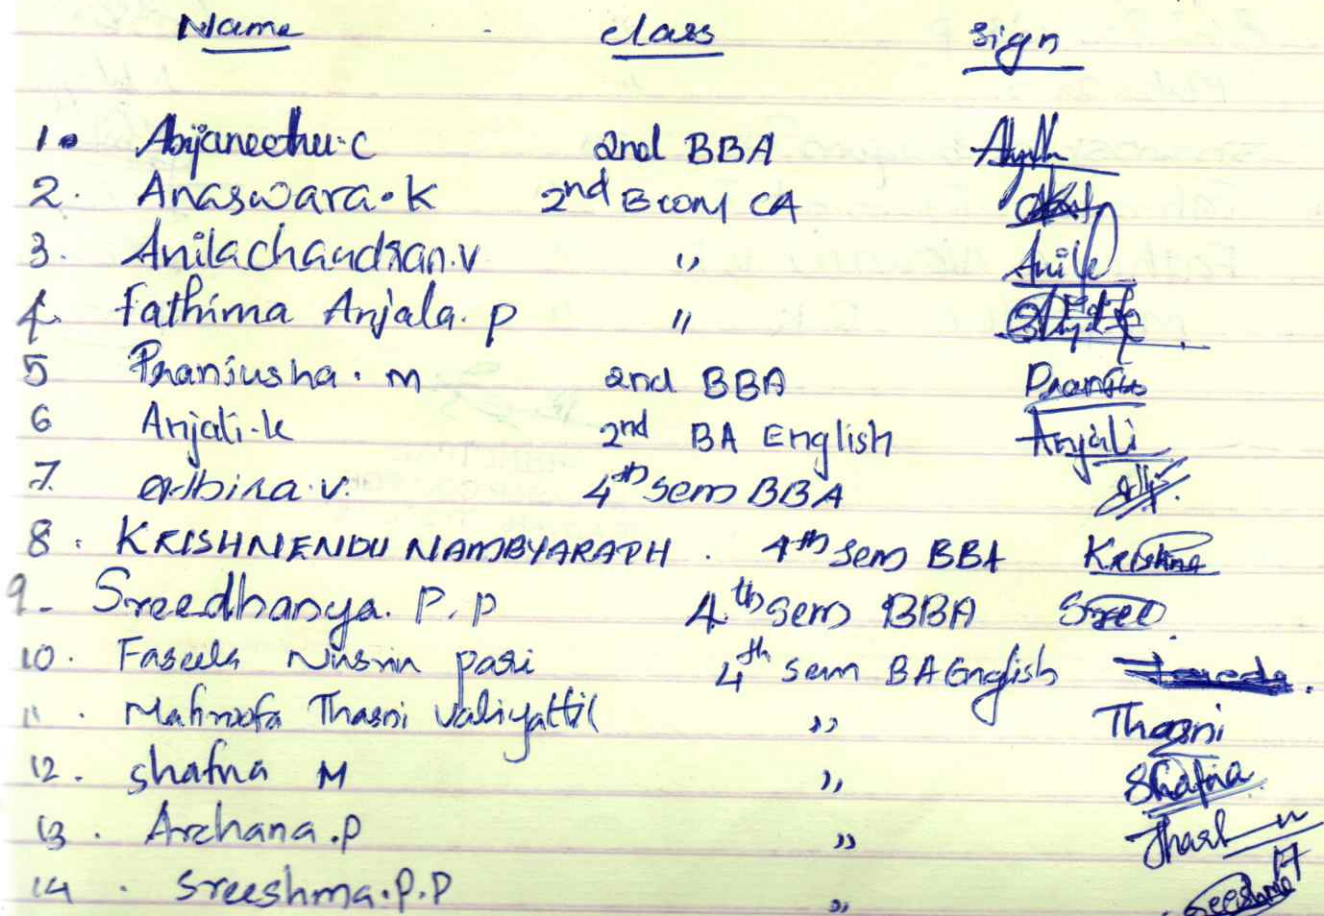 Name class Sign
1. Abijaneethu.C 2nd BBA
2. Anaswara.K 2nd Bcom CA
3. Anilachandran.v " Anila
4. Fathima Anjala.P "
5 Pranjusha.m 2nd BBA Pranju
6 Anjali.k 2nd BA English Anjali
7. Albina.v. 4th sem BBA
8. KRISHNENDU NAMBYARATH. 4th sem BBA Krishna
9. Sreedhanya.P.P 4th sem BBA Sree
10. Faseela Nisrin pari 4th sem BA English
11. Mahroofa Thasni valiyattil " Thasni
12. shafna M " Shafna
13. Archana.p "
14. Sreeshma.P.P " Sreeshma